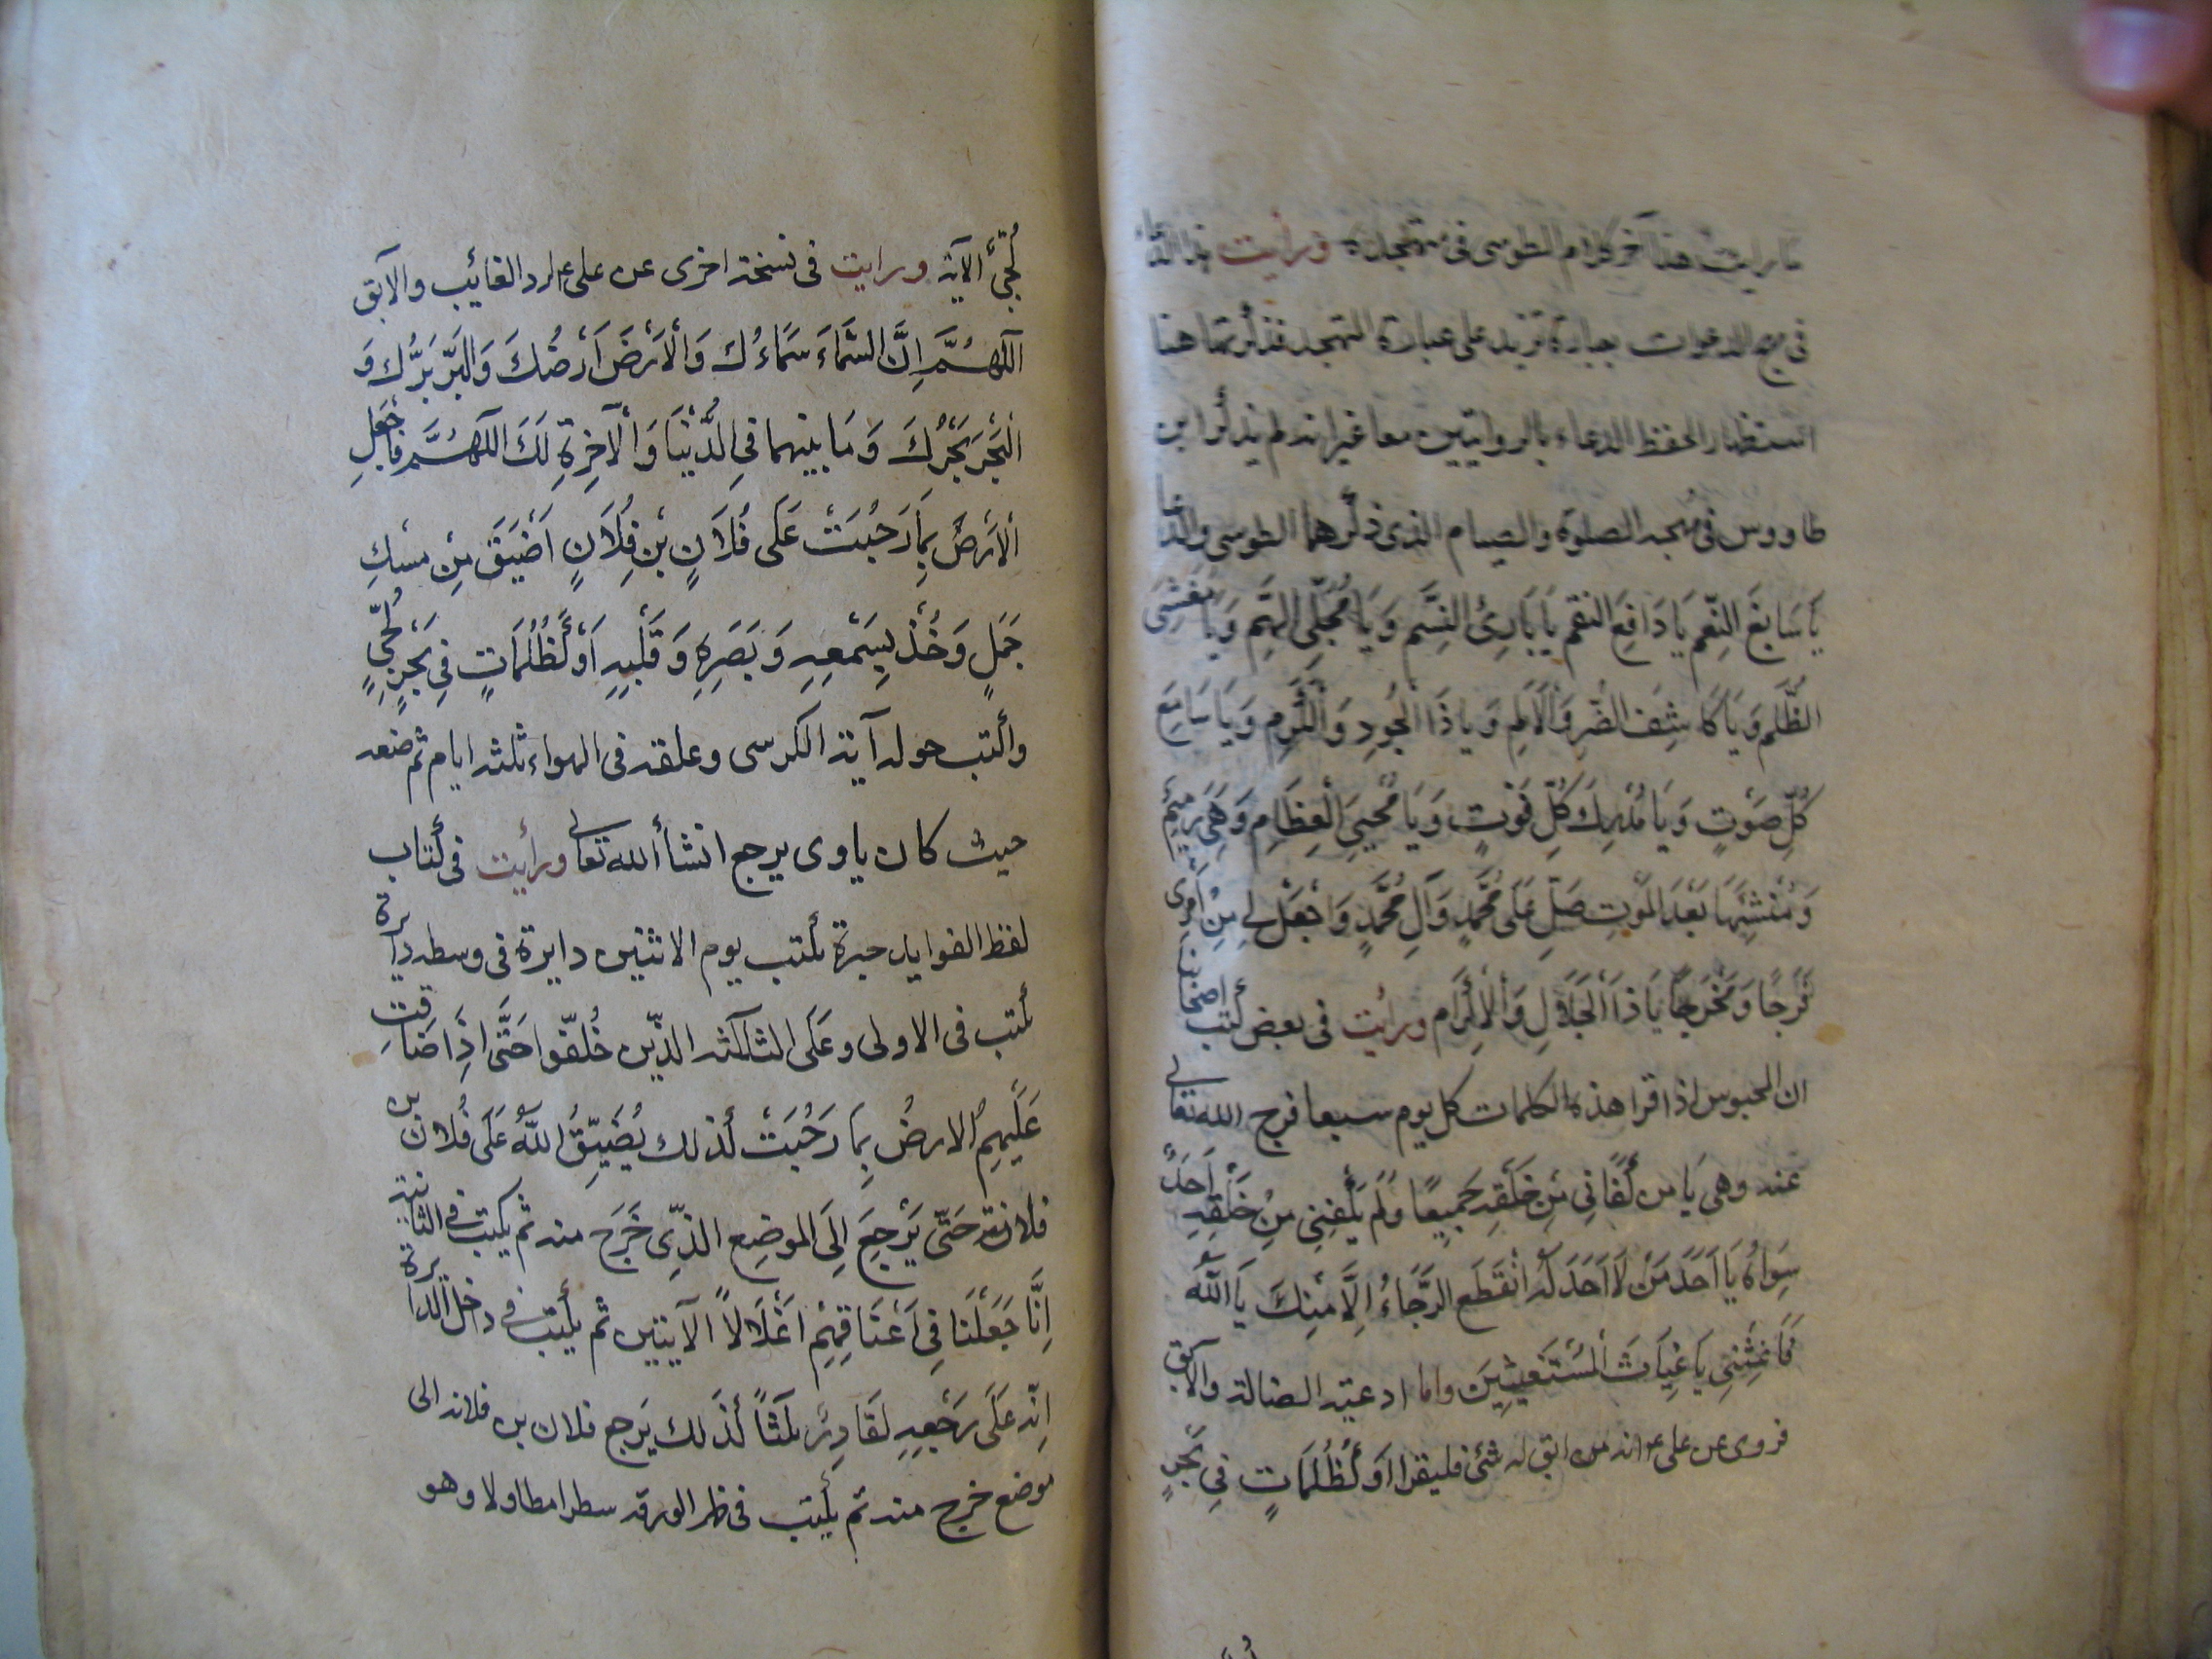 ما رايت هذا آخر كلام الطوسى فى متهجده ورأيت هذا الدعاء
فى مهج الدعوات بعبارة تزيد على عبارة المتهجد فذكرتها هنا
استظهارا لحفظ الدعاء بالروايتين معا غير انه لم يذكر ابن
طاووس فى مهجه الصلوة والصيام الذى ذكرهما الطوسى والدعا
يَا سَابِغَ النِّعَمِ يَا دَافِعَ النقم يَا بَارِئَ النَّسَمِ وَيَا مُجَلِّىَ الهِمَمِ وَيَا مُغَشِّىَ
الظُّلَمِ وَيَا كَاشِفَ الضُّرِّ وَالْاَلَمِ وَيا ذَا الْجُودِ وَالْكَرَمِ وَيَا سَامِعَ
كُلِّ صَوْتٍ وَيَا مُدْرِكَ كُلِّ فَوْتٍ وَيَا مُحْيِىَ الْعِظَامِ وَهِىَ رَمِيْمٌ
وَمُنْشِئَهَا بَعْدَ الْمَوْتِ صَلِّ عَلَى مُحَمَّدٍ وَآلِ مُحَمَّدٍ وَاجْعَلْ لِى مِنْ اَمْرِى
فَرَجًا وَمَخْرَجًا يَا ذَا الْجَلَالِ وَالْاِكْرَام ورأيت فى بعض كتب اصحابنا
ان المحبوس اذا قرا هذه الكلمات كل يوم سبعا فرج الله تعالى
عنه وهى يَا من كَفَانِى مِنْ خَلْقِهِ جَمِيعًا وَلَمْ يَكْفِنِى مِنْ خَلْقِهِ اَحَدٌ
سِوَاهُ يَا اَحَدَ مَنْ لَا اَحَدَ لَهُ انْقَطَعَ الرَّجَاءُ اِلَّا مِنْكَ يَا اَللّٰهُ
فَاَغِثْنِى يَا غِيَاثَ الْمُسْتَغِيثِينَ واما ادعية الضالة والآبق
فروى عن على ع انه من ابق له شئ فليقرا اَوْ كَظُلُمَاتٍ فِى بَحْرٍ
لُجِّىٍّ الآية ورايت فى نسخة اخرى عن على ع لرد الغائب والآبق
اَللّٰهُمَّ اِنَّ السَّمَاءَ سَمَاءُكَ وَالْاَرْضَ اَرْضُكَ وَالْبَرَّ بَرُّكَ وَ
الْبَحْرَ بَحْرُكَ وَمَا بينهما فِى الدُّنْيَا وَالْآخِرَةِ لَكَ اَللّٰهُمَّ فَاجْعَلِ
الْاَرْضَ بِمَا رَحُبَتْ عَلَى فُلَانٍ بْنِ فُلَانٍ اَضْيَقَ مِنْ مسْكِ
جَمَلٍ وَخُذْ بِسَمْعِهِ وَبَصَرِهِ وَقَلْبِهِ اَوْ كَظُلُمَاتٍ فِى بَحْرٍ لُجِّىٍّ
واكتب حوله آية الكرسى وعلقه فى الهواء ثلثة ايام ثم ضعه
حيث كان ياوى يرجع انشأ الله تعالى ورأيت فى كتاب
لفظ الفوايد حيرة تكتب يوم الاثنين دايرة فى وسطه دايرة
تكتب فى الاولى وعَلَى الثلثة الذّين خُلّفوا حَتَّى اِذَا ضَاقَت
عَلَيْهِمُ الارضُ بِمَا رَحُبَتْ كذلك يُضَيِّقُ اللّٰهُ عَلَى فُلان بن
فلانة حَتّى يَرْجِعَ اِلَى الموضِعِ الذّى خَرَجَ منه ثم يكتب فى الثانية
اِنَّا جَعَلْنَا فِى اَعْنَاقِهِمْ اَغْلَالاً الآيتين ثم يكتب فى داخل الدايرة
اِنّه عَلَى رَجْعِهِ لَقَادِرٌ ثلثاً كذَلك يَرجع فلان بن فلانه الى
موضع خرج منه ثم يكتب فى ظهر الورقه سطرا مطاولا وهو